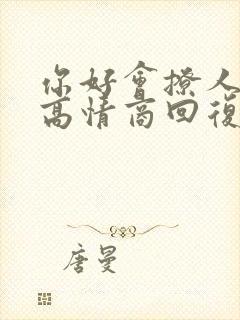 你好會撩人
高情商回復
唐曼